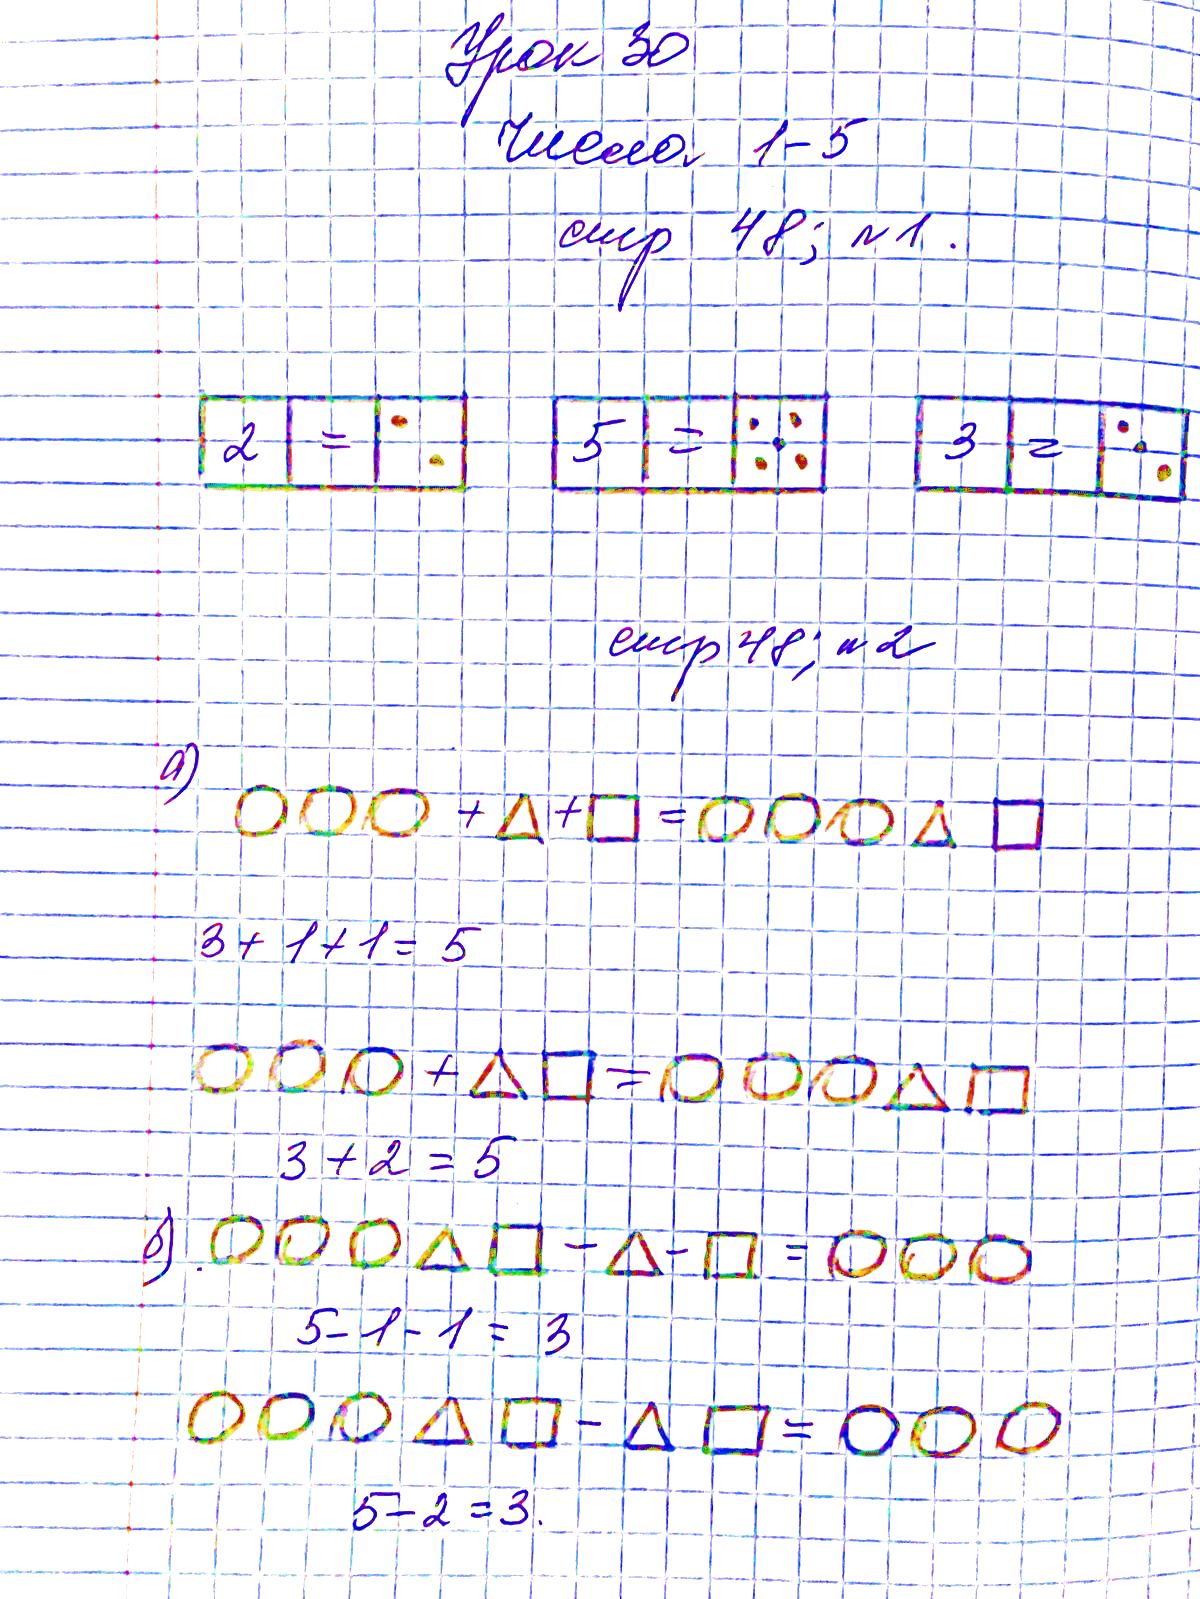 Урок 30
Числа 1-5
стр 48; №1.
2 = 5 = 3 =
стр 48; №2
а)
+ + =
3+1+1=5
+ =
3+2=5
б) - - =
5-1-1=3
- =
5-2=3.